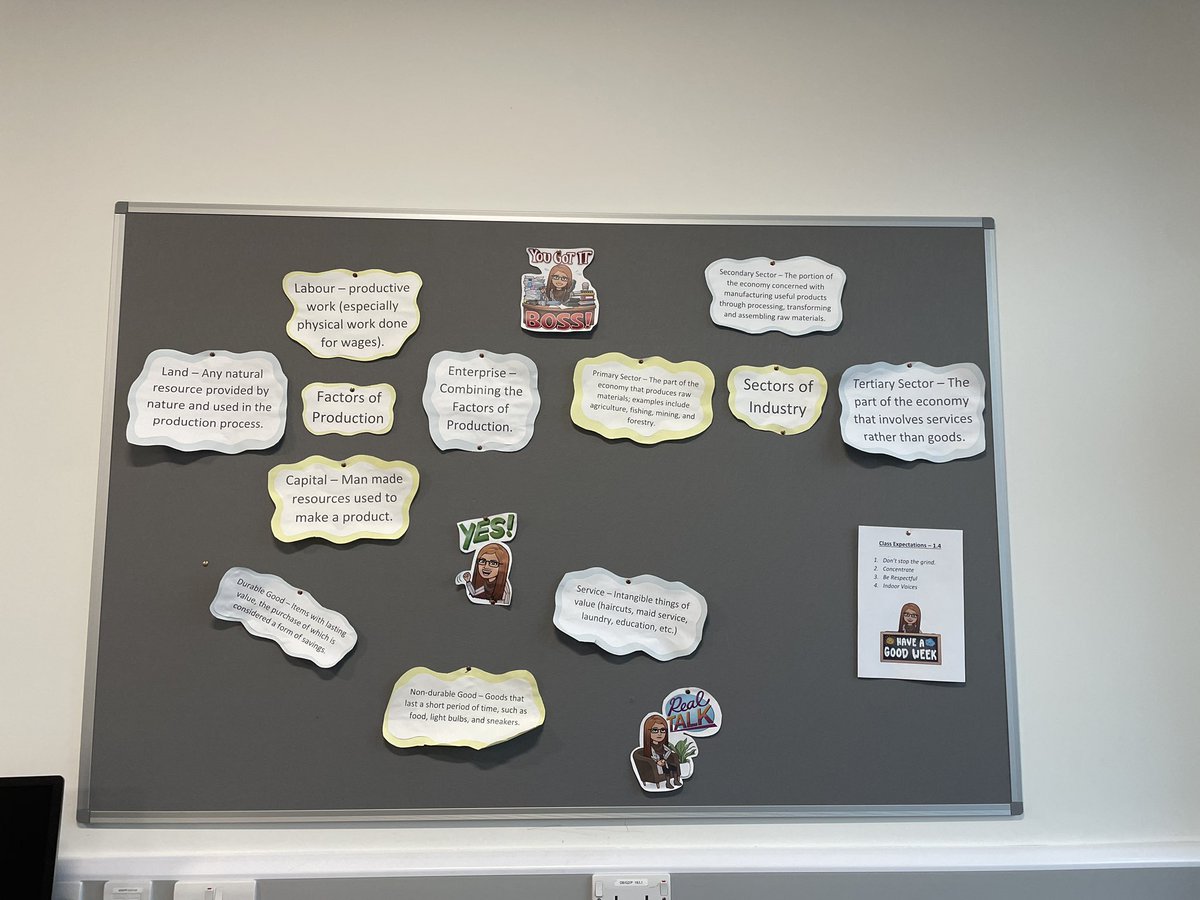 YOU GOT IT
BOSS!
Labour – productive
work (especially
physical work done
for wages).
Secondary Sector – The portion of
the economy concerned with
manufacturing useful products
through processing, transforming
and assembling raw materials.
Land – Any natural
resource provided by
nature and used in the
production process.
Factors of
Production
Enterprise –
Combining the
Factors of
Production.
Primary Sector – The part of the
economy that produces raw
materials; examples include
agriculture, fishing, mining, and
forestry.
Sectors of
Industry
Tertiary Sector – The
part of the economy
that involves services
rather than goods.
Capital – Man made
resources used to
make a product.
YES!
Class Expectations – 1.4
1. Don't stop the grind.
2. Concentrate
3. Be Respectful
4. Indoor Voices
HAVE A
GOOD WEEK
Durable Good – Items with lasting
value, the purchase of which is
considered a form of savings.
Service – Intangible things of
value (haircuts, maid service,
laundry, education, etc.)
Non-durable Good – Goods that
last a short period of time, such as
food, light bulbs, and sneakers.
Real
TALK